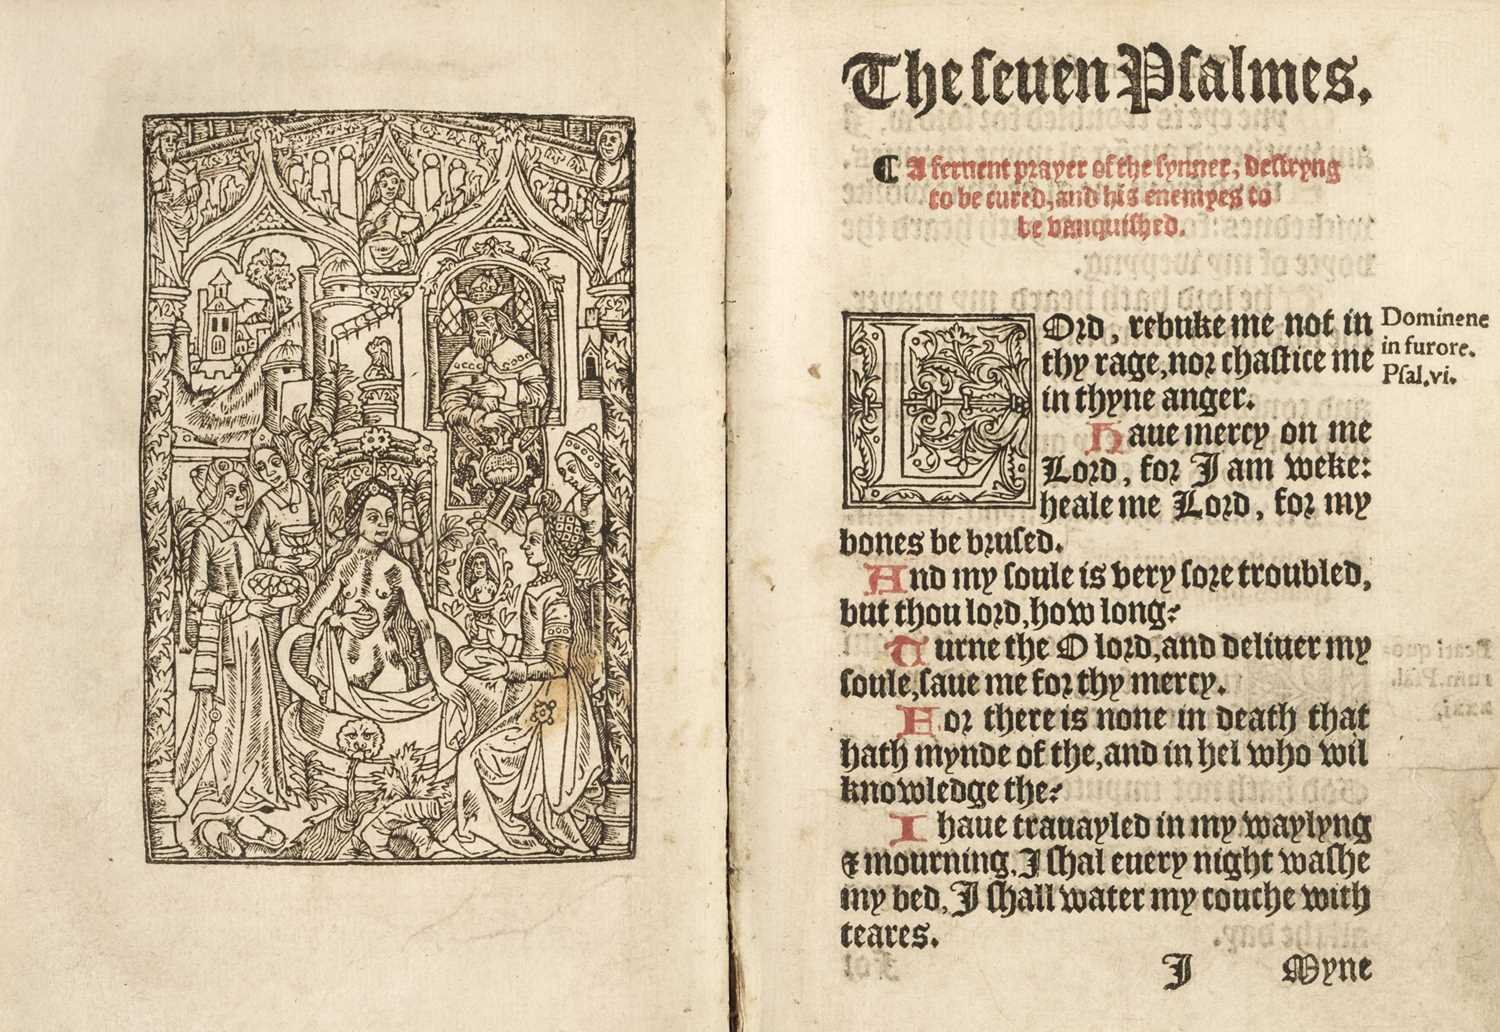 The ſeuen Pſalmes.
¶ A feruent prayer of the synner, desiryng
to be cured, and his enemyes to
be vanquiſhed.
LOrd, rebuke me not in
thy rage, nor chaſtice me
in thyne anger.
Haue mercy on me
Lord, for I am weke:
heale me Lord, for my
bones be bruſed.
And my ſoule is very ſore troubled,
but thou lord, how long?
Turne the O lord, and deliuer my
ſoule, ſaue me for thy mercy.
For there is none in death that
hath mynde of the, and in hel who wil
knowledge the?
I haue trauayled in my waylyng
& mourning, I ſhal euery night waſhe
my bed, I ſhall water my couche with
teares.
I Myne
Dominene
in furore.
Pſal.vi.